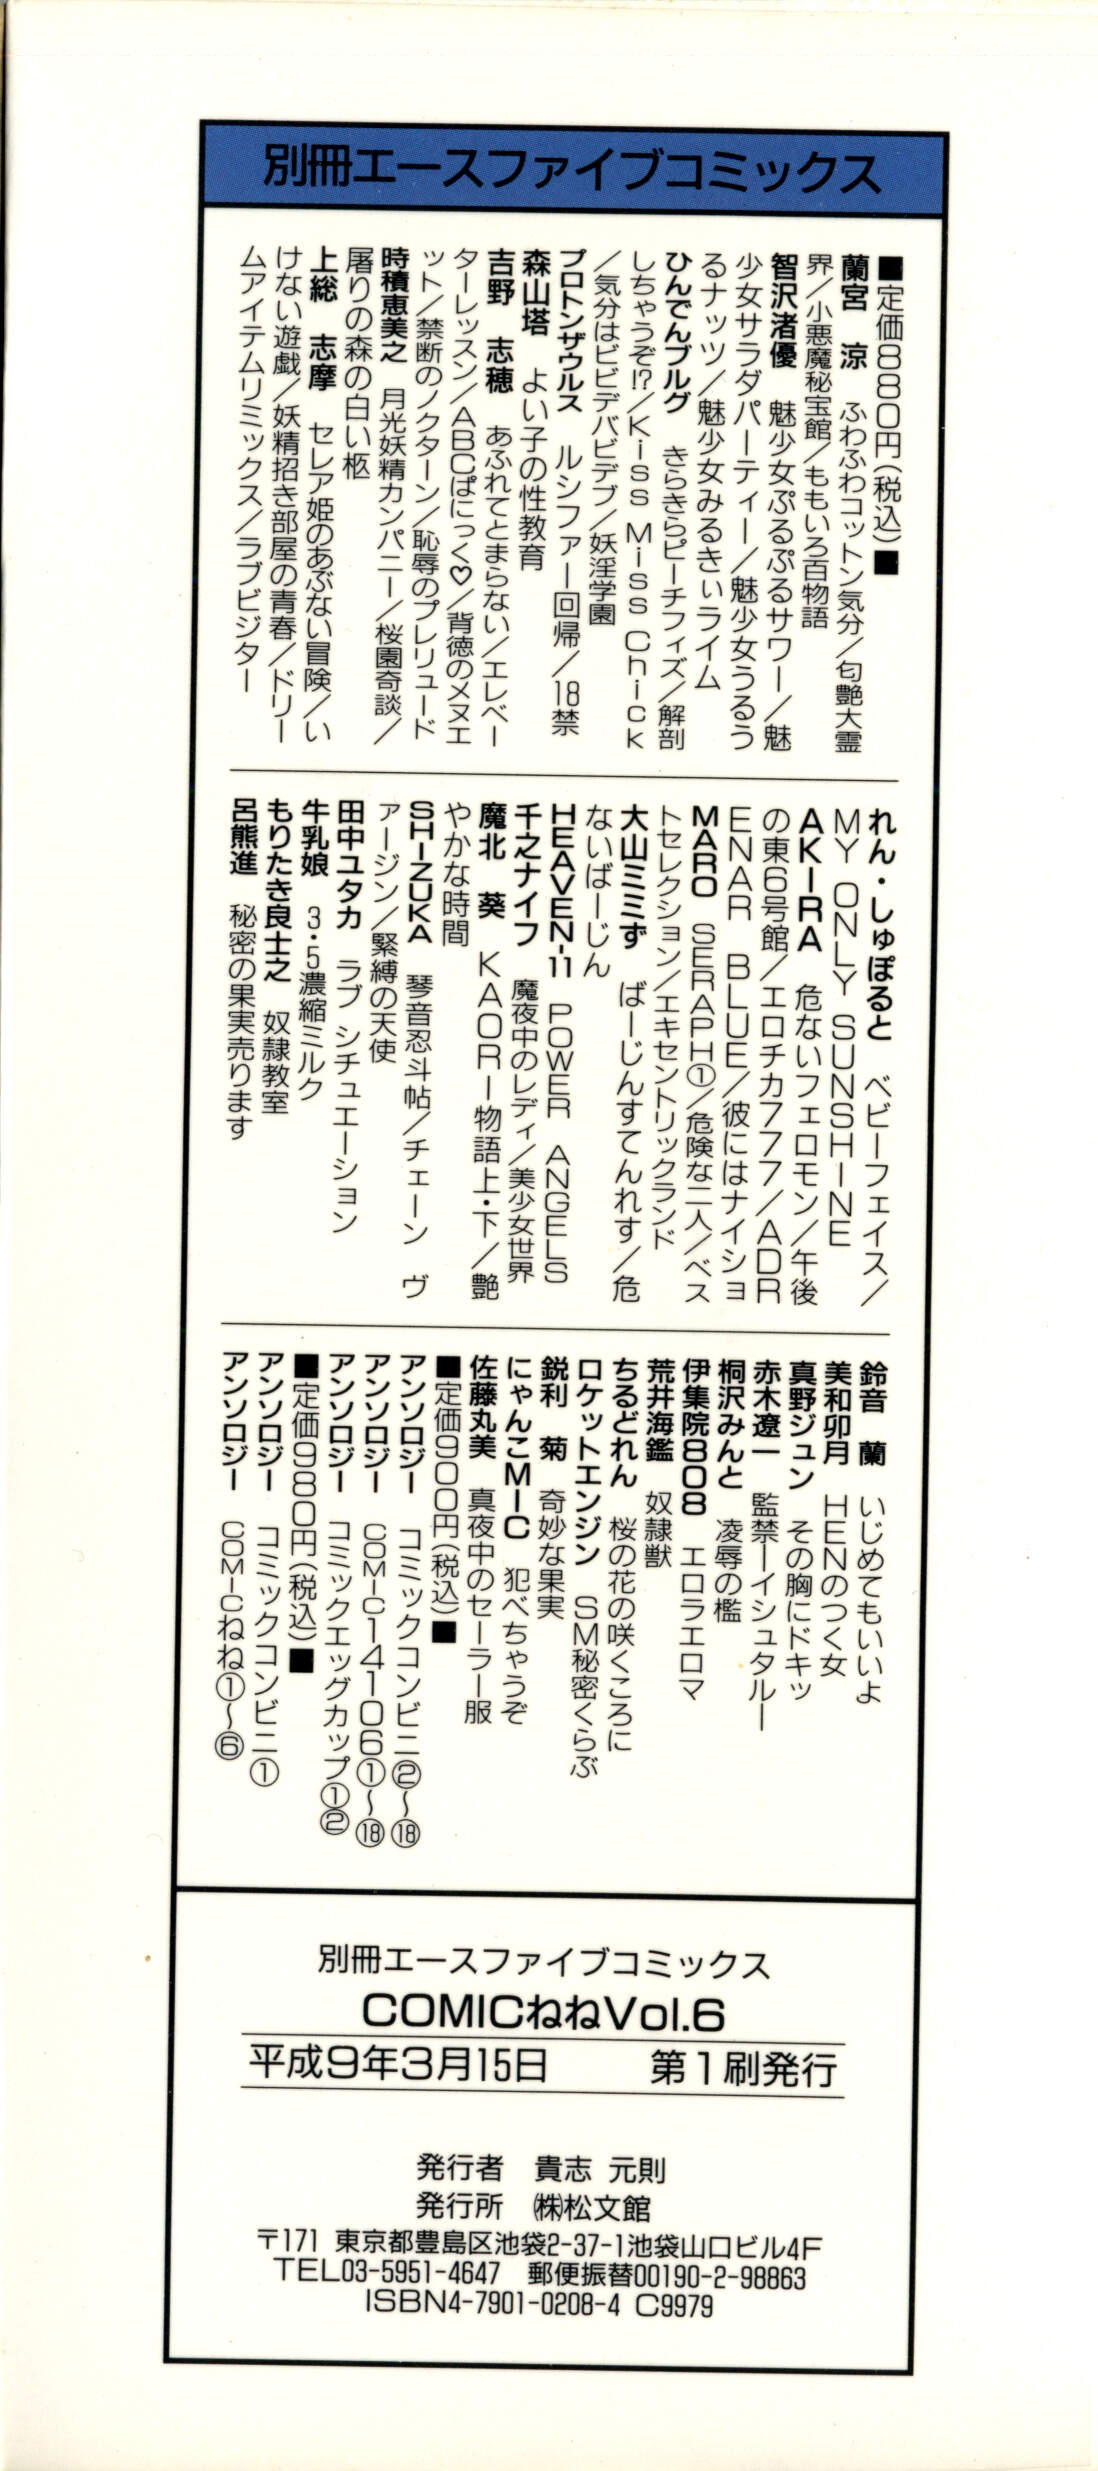 別冊エースファイブコミックス
■定価880円(税込)■
蘭宮　涼　ふわふわコットン気分／匂艶大霊
界／小悪魔秘宝館／ももいろ百物語
智沢渚優　魅少女ぷるぷるサワー／魅
少女サラダパーティー／魅少女うるう
るナッツ／魅少女みるきぃライム
ひんでんブルグ　きらきらピーチフィズ／解剖
しちゃうぞ!?／Kiss Miss Chick
／気分はビビデバビデブ／妖淫学園
プロトンザウルス　ルシファー回帰／18禁
森山塔　よい子の性教育
吉野　志穂　あふれてとまらない／エレベー
ターレッスン／ABCぱにっく♡／背徳のメヌエ
ット／禁断のノクターン／恥辱のプレリュード
時積恵美之　月光妖精カンパニー／桜園奇談／
屠りの森の白い柩
上総　志摩　セレア姫のあぶない冒険／い
けない遊戯／妖精招き部屋の青春／ドリー
ムアイテムリミックス／ラブビジター
れん・しゅぽると　ベビーフェイス／
MY ONLY SUNSHINE
AKIRA　危ないフェロモン／午後
の東6号館／エロチカ777／ADR
ENAR BLUE／彼にはナイショ
MARO　SERAPH①／危険な二人／ベス
トセレクション／エキセントリックランド
大山ミミず　ばーじんすてんれす／危
ないばーじん
HEAVEN-11　POWER ANGELS
千之ナイフ　魔夜中のレディ／美少女世界
魔北　葵　KAORI物語上・下／艶
やかな時間
SHIZUKA　琴音忍斗帖／チェーン　ヴ
ァージン／緊縛の天使
田中ユタカ　ラブ シチュエーション
牛乳娘　3・5濃縮ミルク
もりたき良士之　奴隷教室
呂熊進　秘密の果実売ります
鈴音　蘭　いじめてもいいよ
美和卯月　HENのつく女
真野ジュン　その胸にドキッ
赤木遼一　監禁ーイシュタルー
桐沢みんと　凌辱の檻
伊集院808　エロラエロマ
荒井海鑑　奴隷獣
ちるどれん　桜の花の咲くころに
ロケットエンジン　SM秘密くらぶ
鋭利　菊　奇妙な果実
にゃんこMIC　犯べちゃうぞ
佐藤丸美　真夜中のセーラー服
■定価900円(税込)■
アンソロジー　コミックコンビニ②〜⑱
アンソロジー　COMIC1４106①〜⑱
アンソロジー　コミックエッグカップ①②
■定価980円(税込)■
アンソロジー　コミックコンビニ①
アンソロジー　COMICねね①〜⑥
別冊エースファイブコミックス
COMICねねVol.6
平成9年3月15日　第1刷発行
発行者　貴志 元則
発行所　㈱松文館
〒171 東京都豊島区池袋2-37-1池袋山口ビル4F
TEL03-5951-4647　郵便振替00190-2-98863
ISBN4-7901-0208-4 C9979